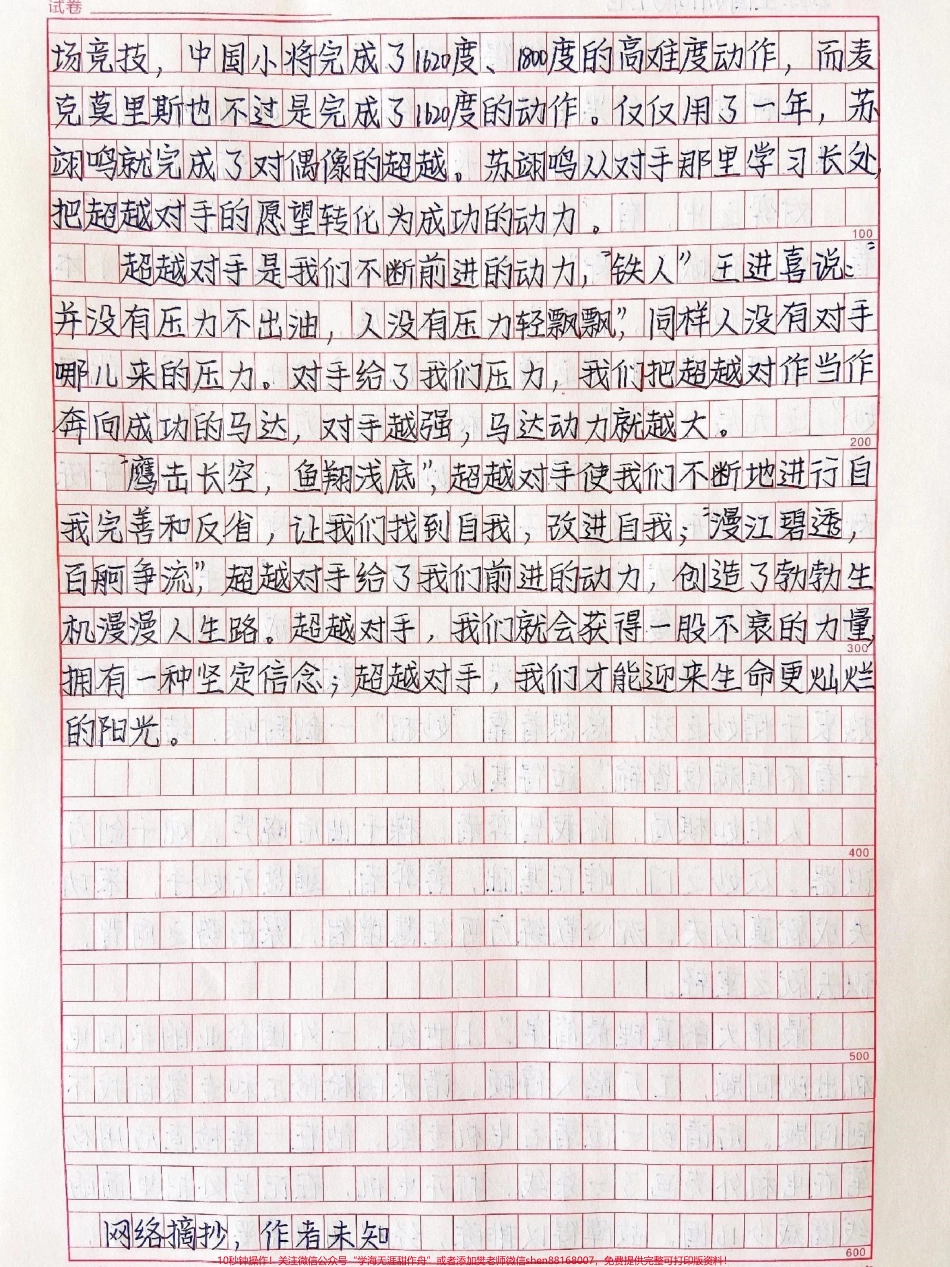 试卷
场竞技，中国小将完成了1620度、1800度的高难度动作，而麦
克莫里斯也不过是完成了1620度的动作。仅仅用了一年，苏
翊鸣就完成了对偶像的超越。苏翊鸣从对手那里学习长处，
把超越对手的愿望转化为成功的动力。
100
超越对手是我们不断前进的动力，“铁人”王进喜说：“
井没有压力不出油，人没有压力轻飘飘”，同样人没有对手
哪儿来的压力。对手给了我们压力，我们把超越对作当作
奔向成功的马达，对手越强，马达动力就越大。
200
“鹰击长空，鱼翔浅底”，超越对手使我们不断地进行自
我完善和反省，让我们找到自我，改进自我；“漫江碧透，
百舸争流”，超越对手给了我们前进的动力，创造了勃勃生
机漫漫人生路。超越对手，我们就会获得一股不衰的力量，
300
拥有一种坚定信念；超越对手，我们才能迎来生命更灿烂
的阳光。
400
500
网络摘抄，作者未知
600
10秒钟操作！关注微信公众号“学海无涯甜作舟”或者添加樊老师微信shen88168007，免费提供完整可打印版资料！